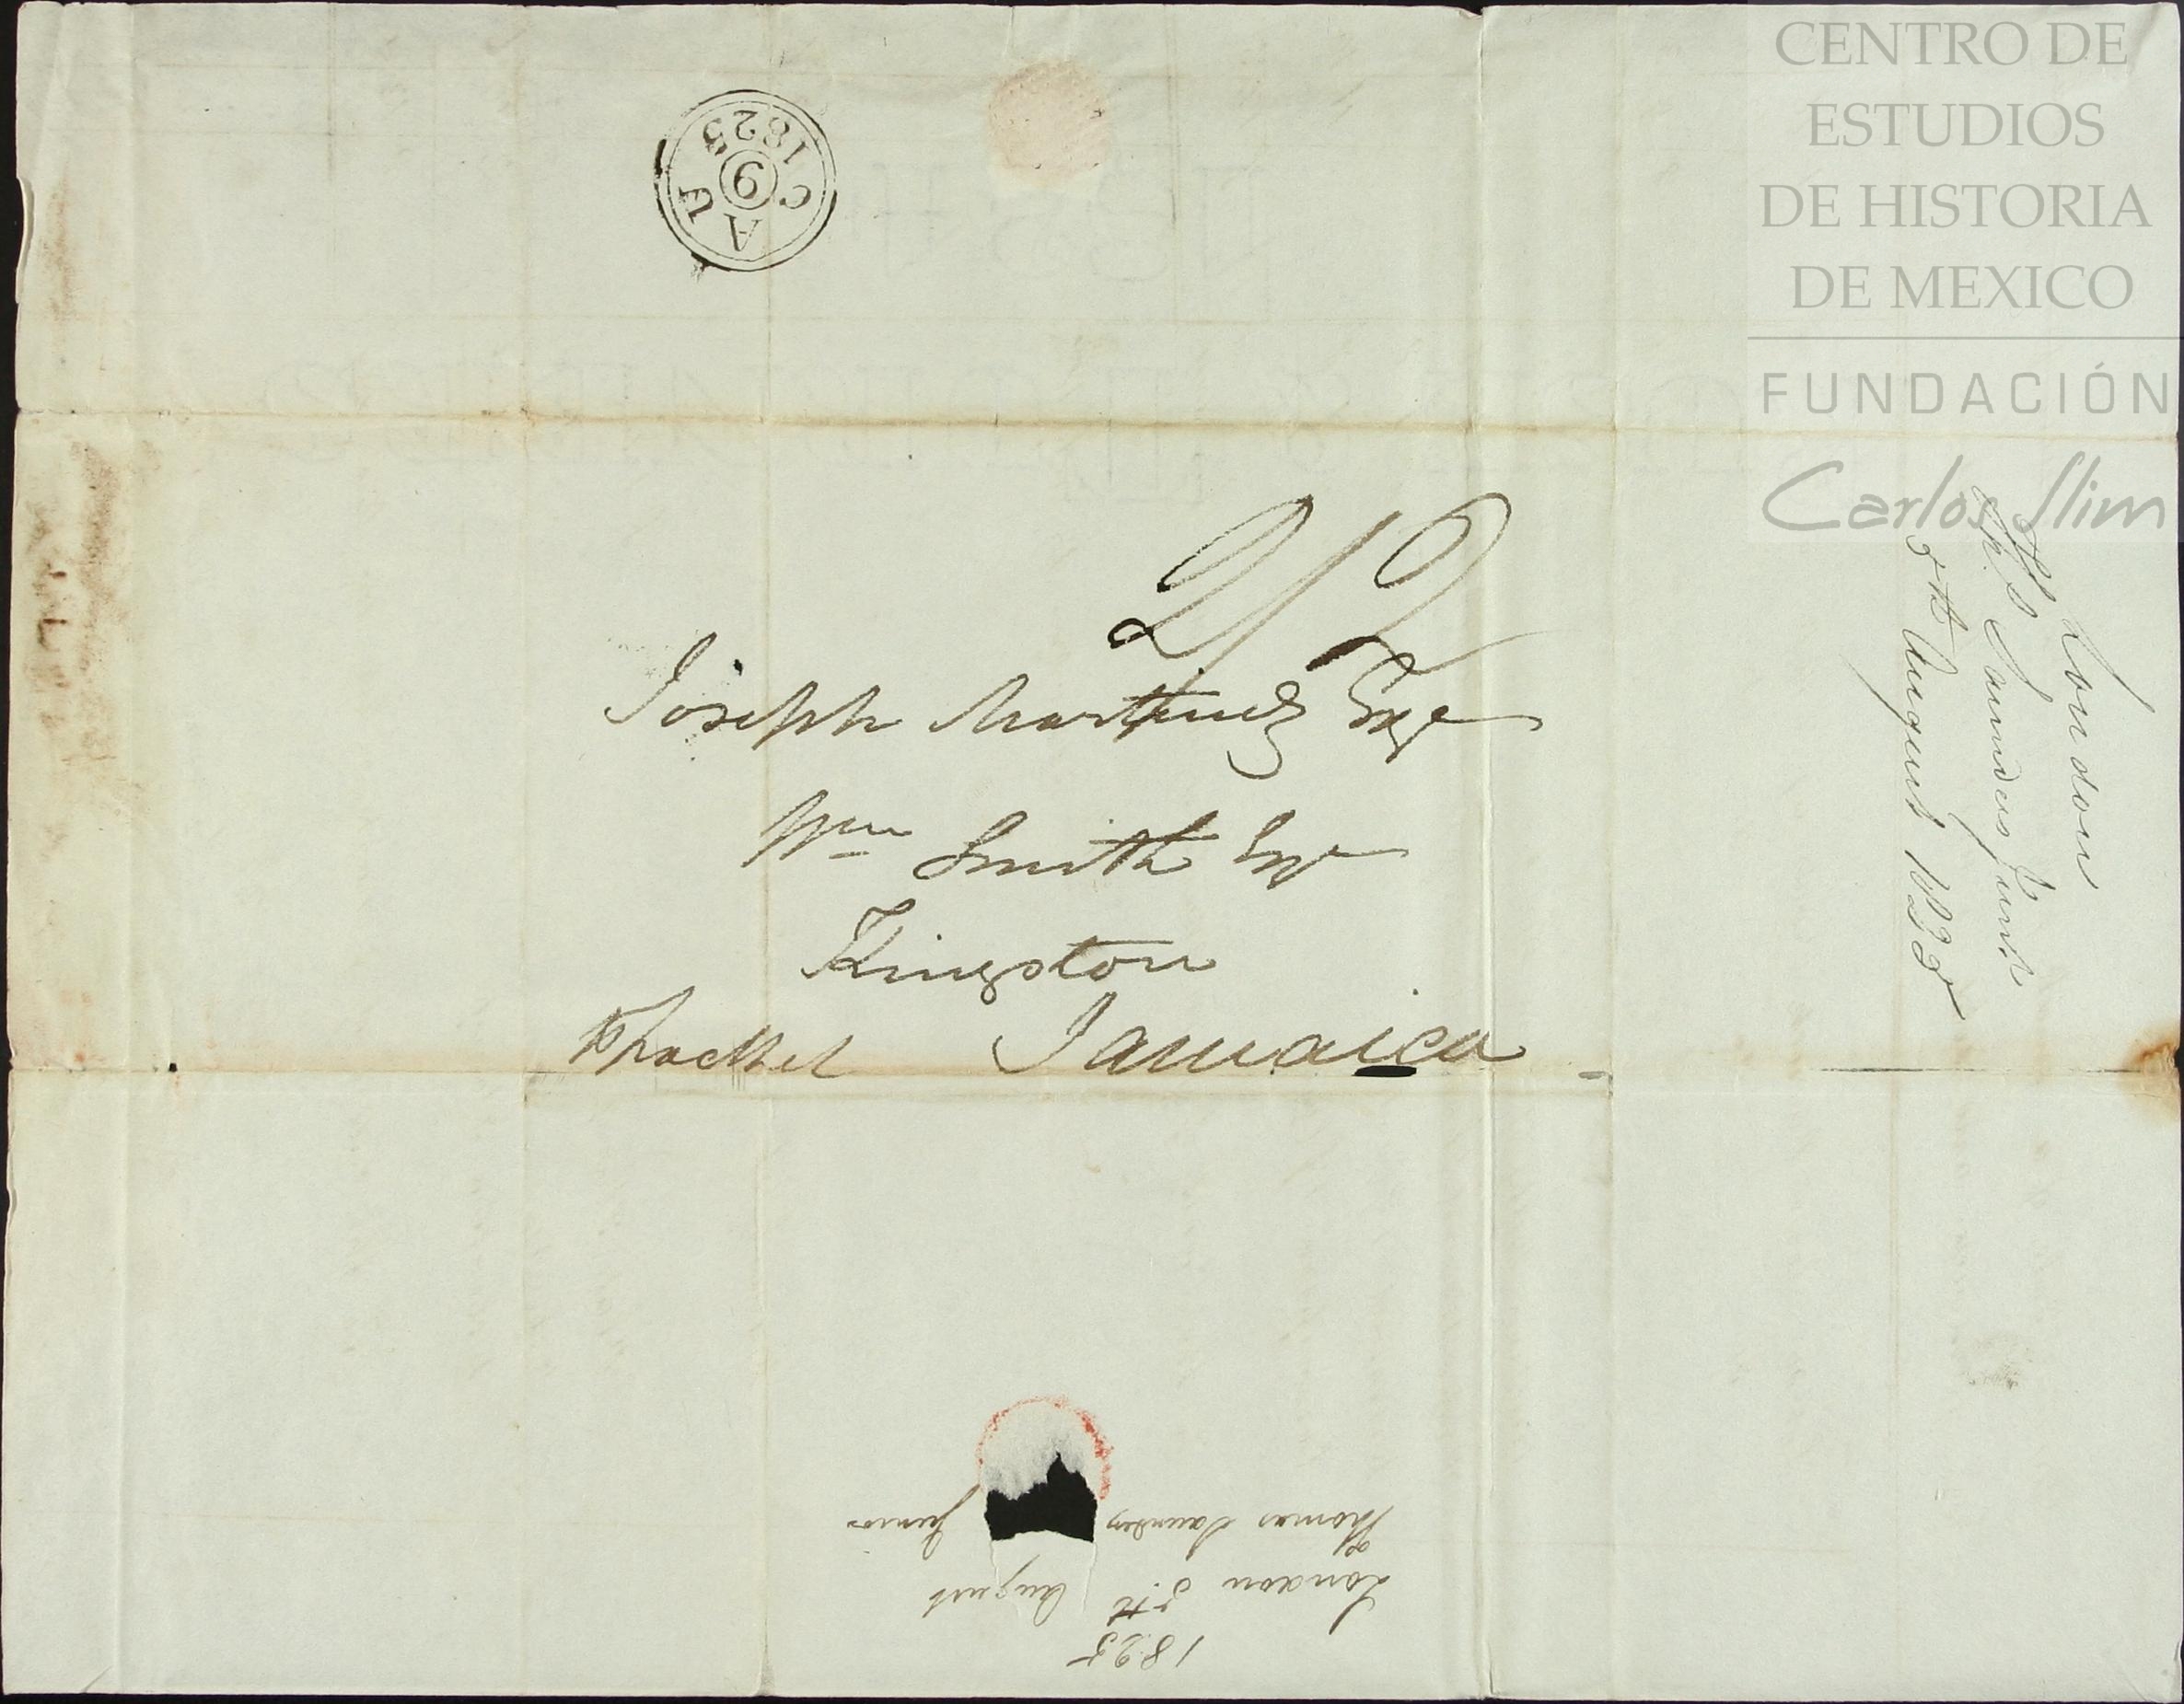 C
AU
9
1825
CENTRO DE
ESTUDIOS
DE HISTORIA
DE MEXICO
FUNDACIÓN
Carlos Slim
2/2
Joseph Martinez Esqe
Wm Smith Esqe
Kingston
Jamaica
London
Saunders Junr
5th August 1825
1825
London 5th August
Thomas Saunders Junior